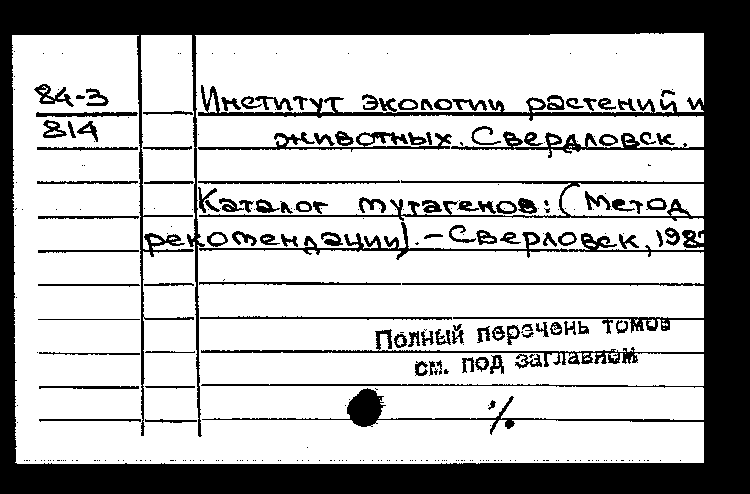 84-3 Институт экологии растений и
814 животных. Свердловск.
Каталог мутагенов: (Метод
рекомендации). – Сверловск, 198
Полный перечень томов
см. под заглавием
%